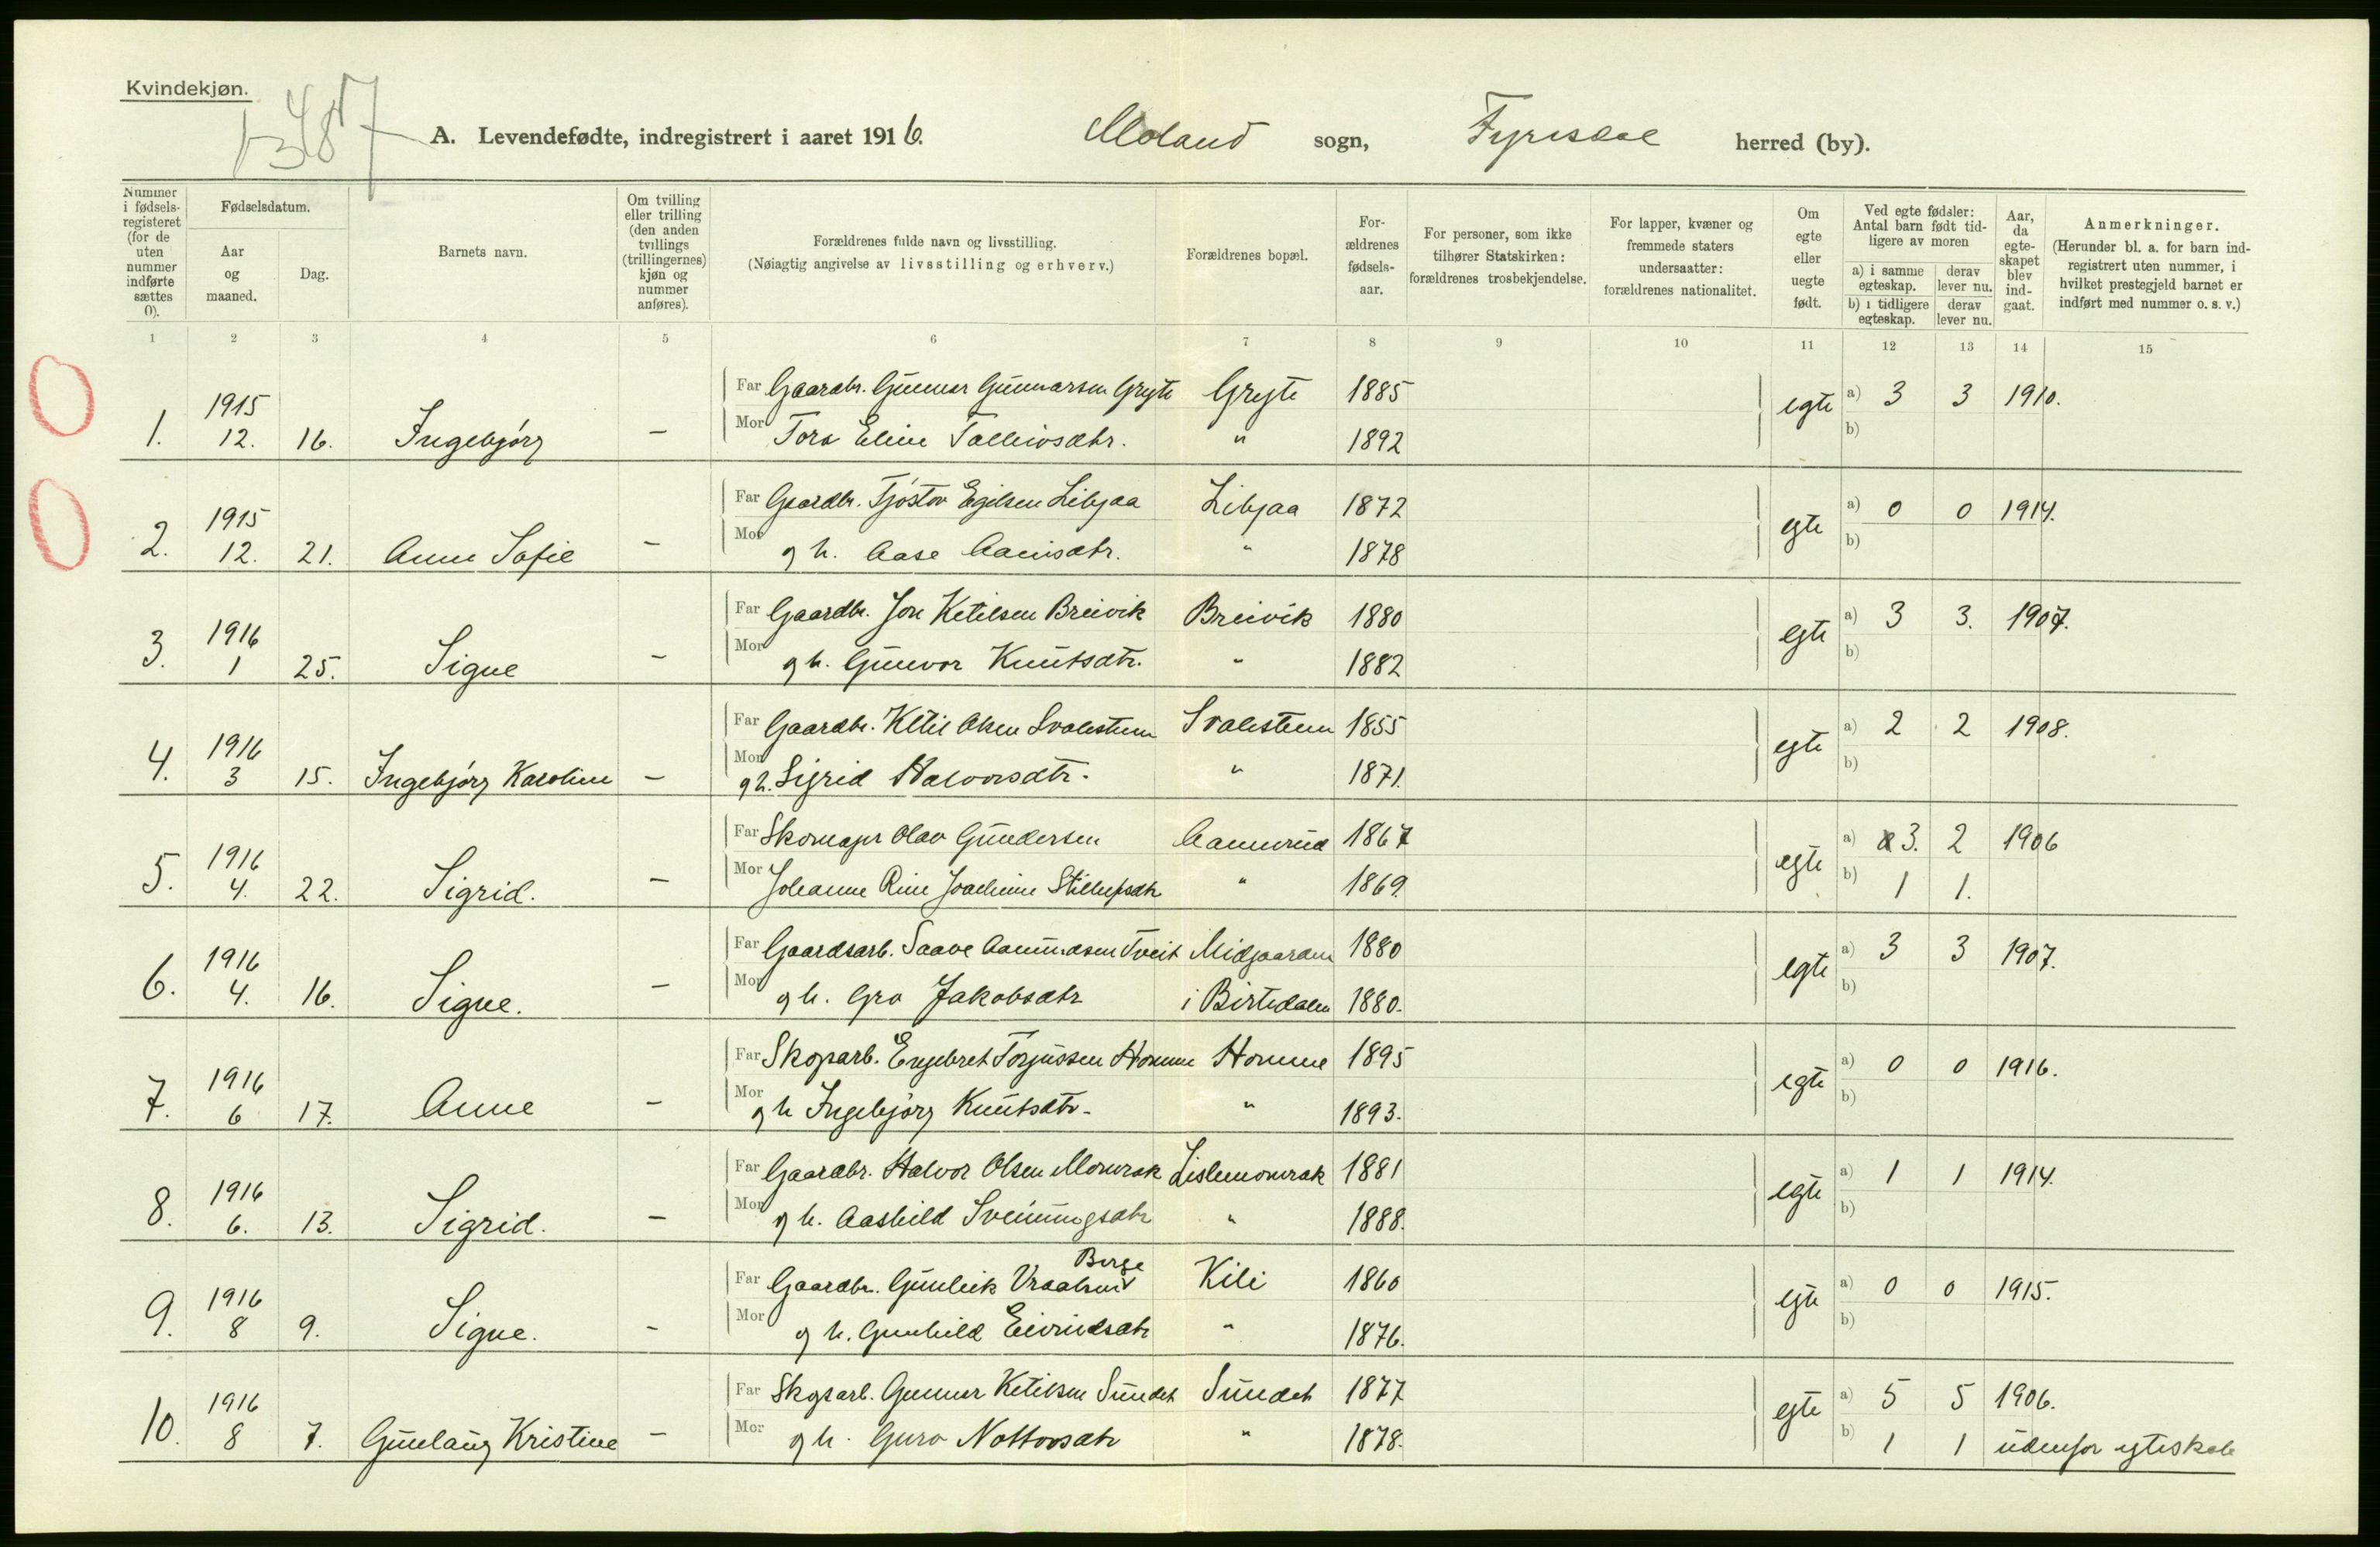 Kvindekjøn.
A. Levendefødte, indregistrert i aaret 1916. Moland sogn, Fyresdal herred (by).
Nummer i fødselsregisteret (for de uten nummer indførte sættes 0).
Fødselsdatum.
Aar og maaned.
Dag.
Barnets navn.
Om tvilling eller trilling (den anden tvillings (trillingernes) kjøn og nummer anføres).
Forældrenes fulde navn og livsstilling.
(Nøiagtig angivelse av livsstilling og erhverv.)
Forældrenes bopæl.
Forældrenes fødselsaar.
For personer, som ikke tilhører Statskirken: forældrenes trosbekjendelse.
For lapper, kvæner og fremmede staters undersaatter: forældrenes nationalitet.
Om egte eller uegte født.
Ved egte fødsler: Antal barn født tidligere av moren
a) i samme egteskap. derav lever nu.
b) i tidligere egteskap. derav lever nu.
Aar, da egteskapet blev indgaat.
Anmerkninger.
(Herunder bl. a. for barn indregistrert uten nummer, i hvilket prestegjeld barnet er indført med nummer o. s. v.)
1 2 3 4 5 6 7 8 9 10 11 12 13 14 15
1. 1915 12. 16. Ingebjörg –
Far Gaardbr. Gunnar Gunnarsen Grejte Grejte 1885 egte a) 3 3 1910.
Mor Tora Eline Talleivsdtr. " 1892 b)
2. 1915 12. 21. Anne Sofie –
Far Gaardbr. Tjöstov Egilsen Libjaa Libjaa 1872 egte a) 0 0 1914.
Mor g h. Aase Aanisdtr. " 1878 b)
3. 1916 1 25. Signe –
Far Gaardbr. Jon Ketilsen Breivik Breivik 1880 egte a) 3 3. 1907.
Mor g h. Gunvor Knutsdtr. " 1882 b)
4. 1916 3 15. Ingebjörg Karoline –
Far Gaardbr. Ketil Olsen Svalestuen Svalestuen 1855 egte a) 2 2 1908.
Mor g h. Sigrid Halvorsdtr. " 1871. b)
5. 1916 4. 22. Sigrid. –
Far Skomager Olav Gundersen Aamerud 1867 egte a) 3. 2 1906
Mor Johanne Rine Joachime " 1869. b) 1 1.
6. 1916 4. 16. Signe. –
Far Gaardsarb. Saave Aamundsen Tveit Midgaarden 1880 egte a) 3 3 1907.
Mor g h. Gro Jakobsdtr i Birtedalen 1880. b)
7. 1916 6 17. Anne –
Far Skogsarb. Engebret Torjussen Homme Homme 1895 egte a) 0 0 1916.
Mor g h Ingebjörg Knutsdtr. " 1893. b)
8. 1916 6. 13. Sigrid. –
Far Gaardbr. Halvor Olsen Momrak Lislemomrak 1881 egte a) 1 1 1914.
Mor g h. Aashild Sveinungsdtr " 1888. b)
9. 1916 8 9. Signe. –
Berge
Far Gaardbr. Gunleik Vraalsen Kili 1860 egte a) 0 0 1915.
Mor g h. Gunhild Eivindsdtr " 1876. b)
10. 1916 8 7. Gunlaug Kristine –
Far Skogsarb. Gunnar Ketilsen Sundet Sundet 1877 egte a) 5 5 1906.
Mor g h. Guro Nottovsdtr " 1878. b) 1 1 udenfor egteskab